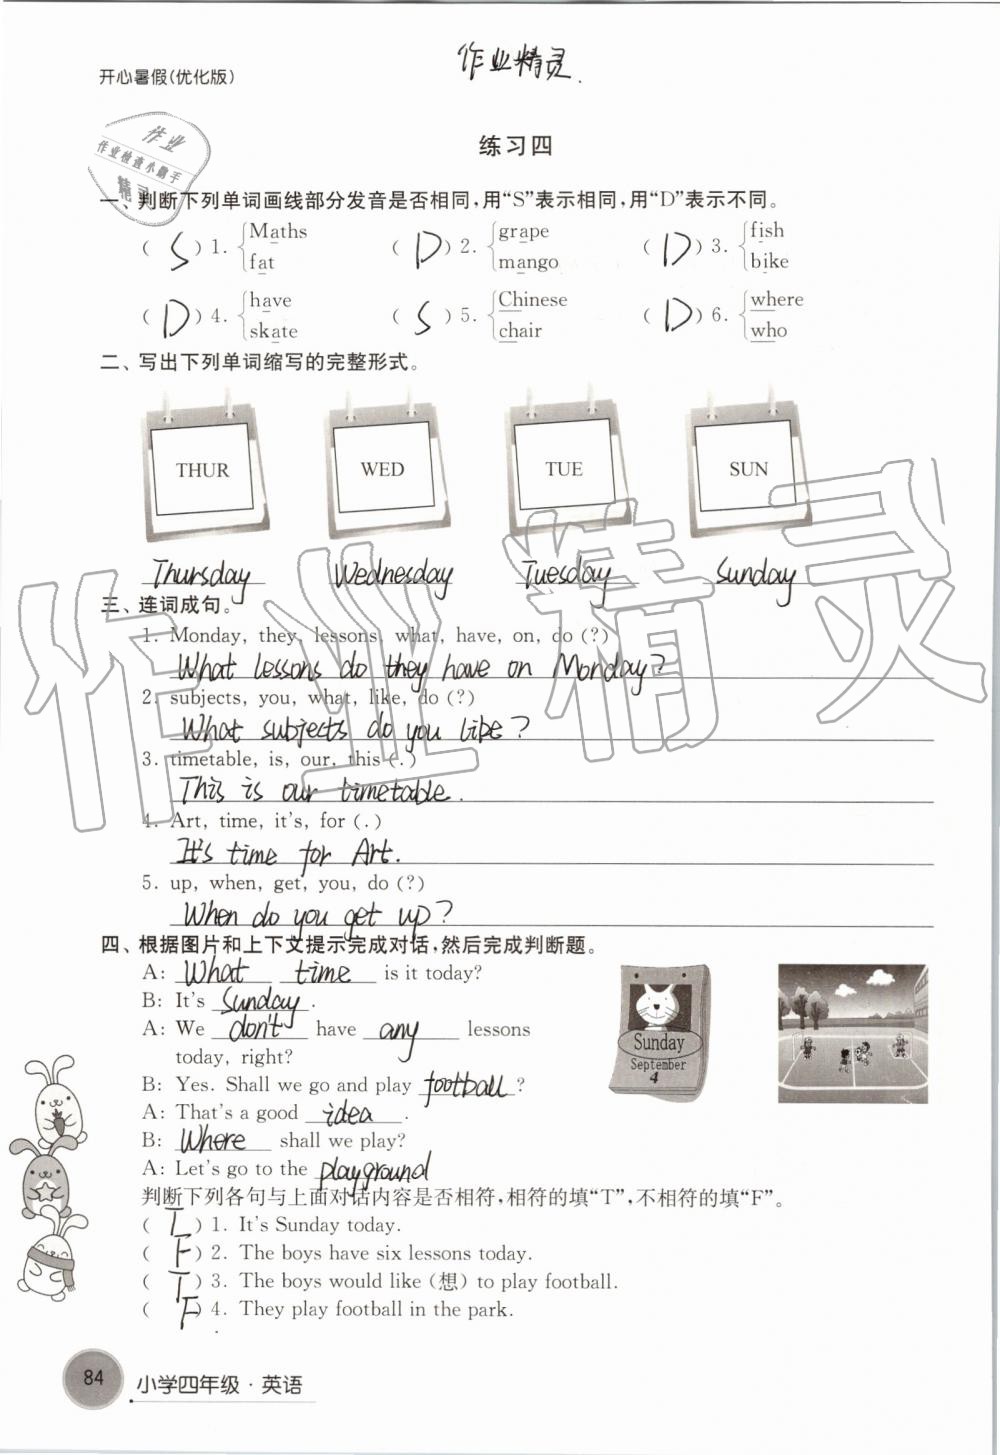 开心暑假(优化版)
作业精灵.
作业
作业检查小助手
精灵
练习四
一、判断下列单词画线部分发音是否相同,用“S”表示相同,用“D”表示不同。
( S )1. Maths fat ( D )2. grape mango ( D )3. fish bike
( D )4. have skate ( S )5. Chinese chair ( D )6. where who
二、写出下列单词缩写的完整形式。
THUR WED TUE SUN
Thursday Wednesday Tuesday Sunday
三、连词成句。
1. Monday, they, lessons, what, have, on, do (?)
What lessons do they have on Monday?
2. subjects, you, what, like, do (?)
What subjects do you like?
3. timetable, is, our, this (.)
This is our timetable.
4. Art, time, it's, for (.)
It's time for Art.
5. up, when, get, you, do (?)
When do you get up?
四、根据图片和上下文提示完成对话,然后完成判断题。
A: What time is it today?
B: It's Sunday.
A: We don't have any lessons
today, right?
B: Yes. Shall we go and play football?
A: That's a good idea.
B: Where shall we play?
A: Let's go to the playground
Sunday
September
4
判断下列各句与上面对话内容是否相符,相符的填“T”,不相符的填“F”。
( T )1. It's Sunday today.
( F )2. The boys have six lessons today.
( T )3. The boys would like (想) to play football.
( F )4. They play football in the park.
84
小学四年级·英语
作业精灵